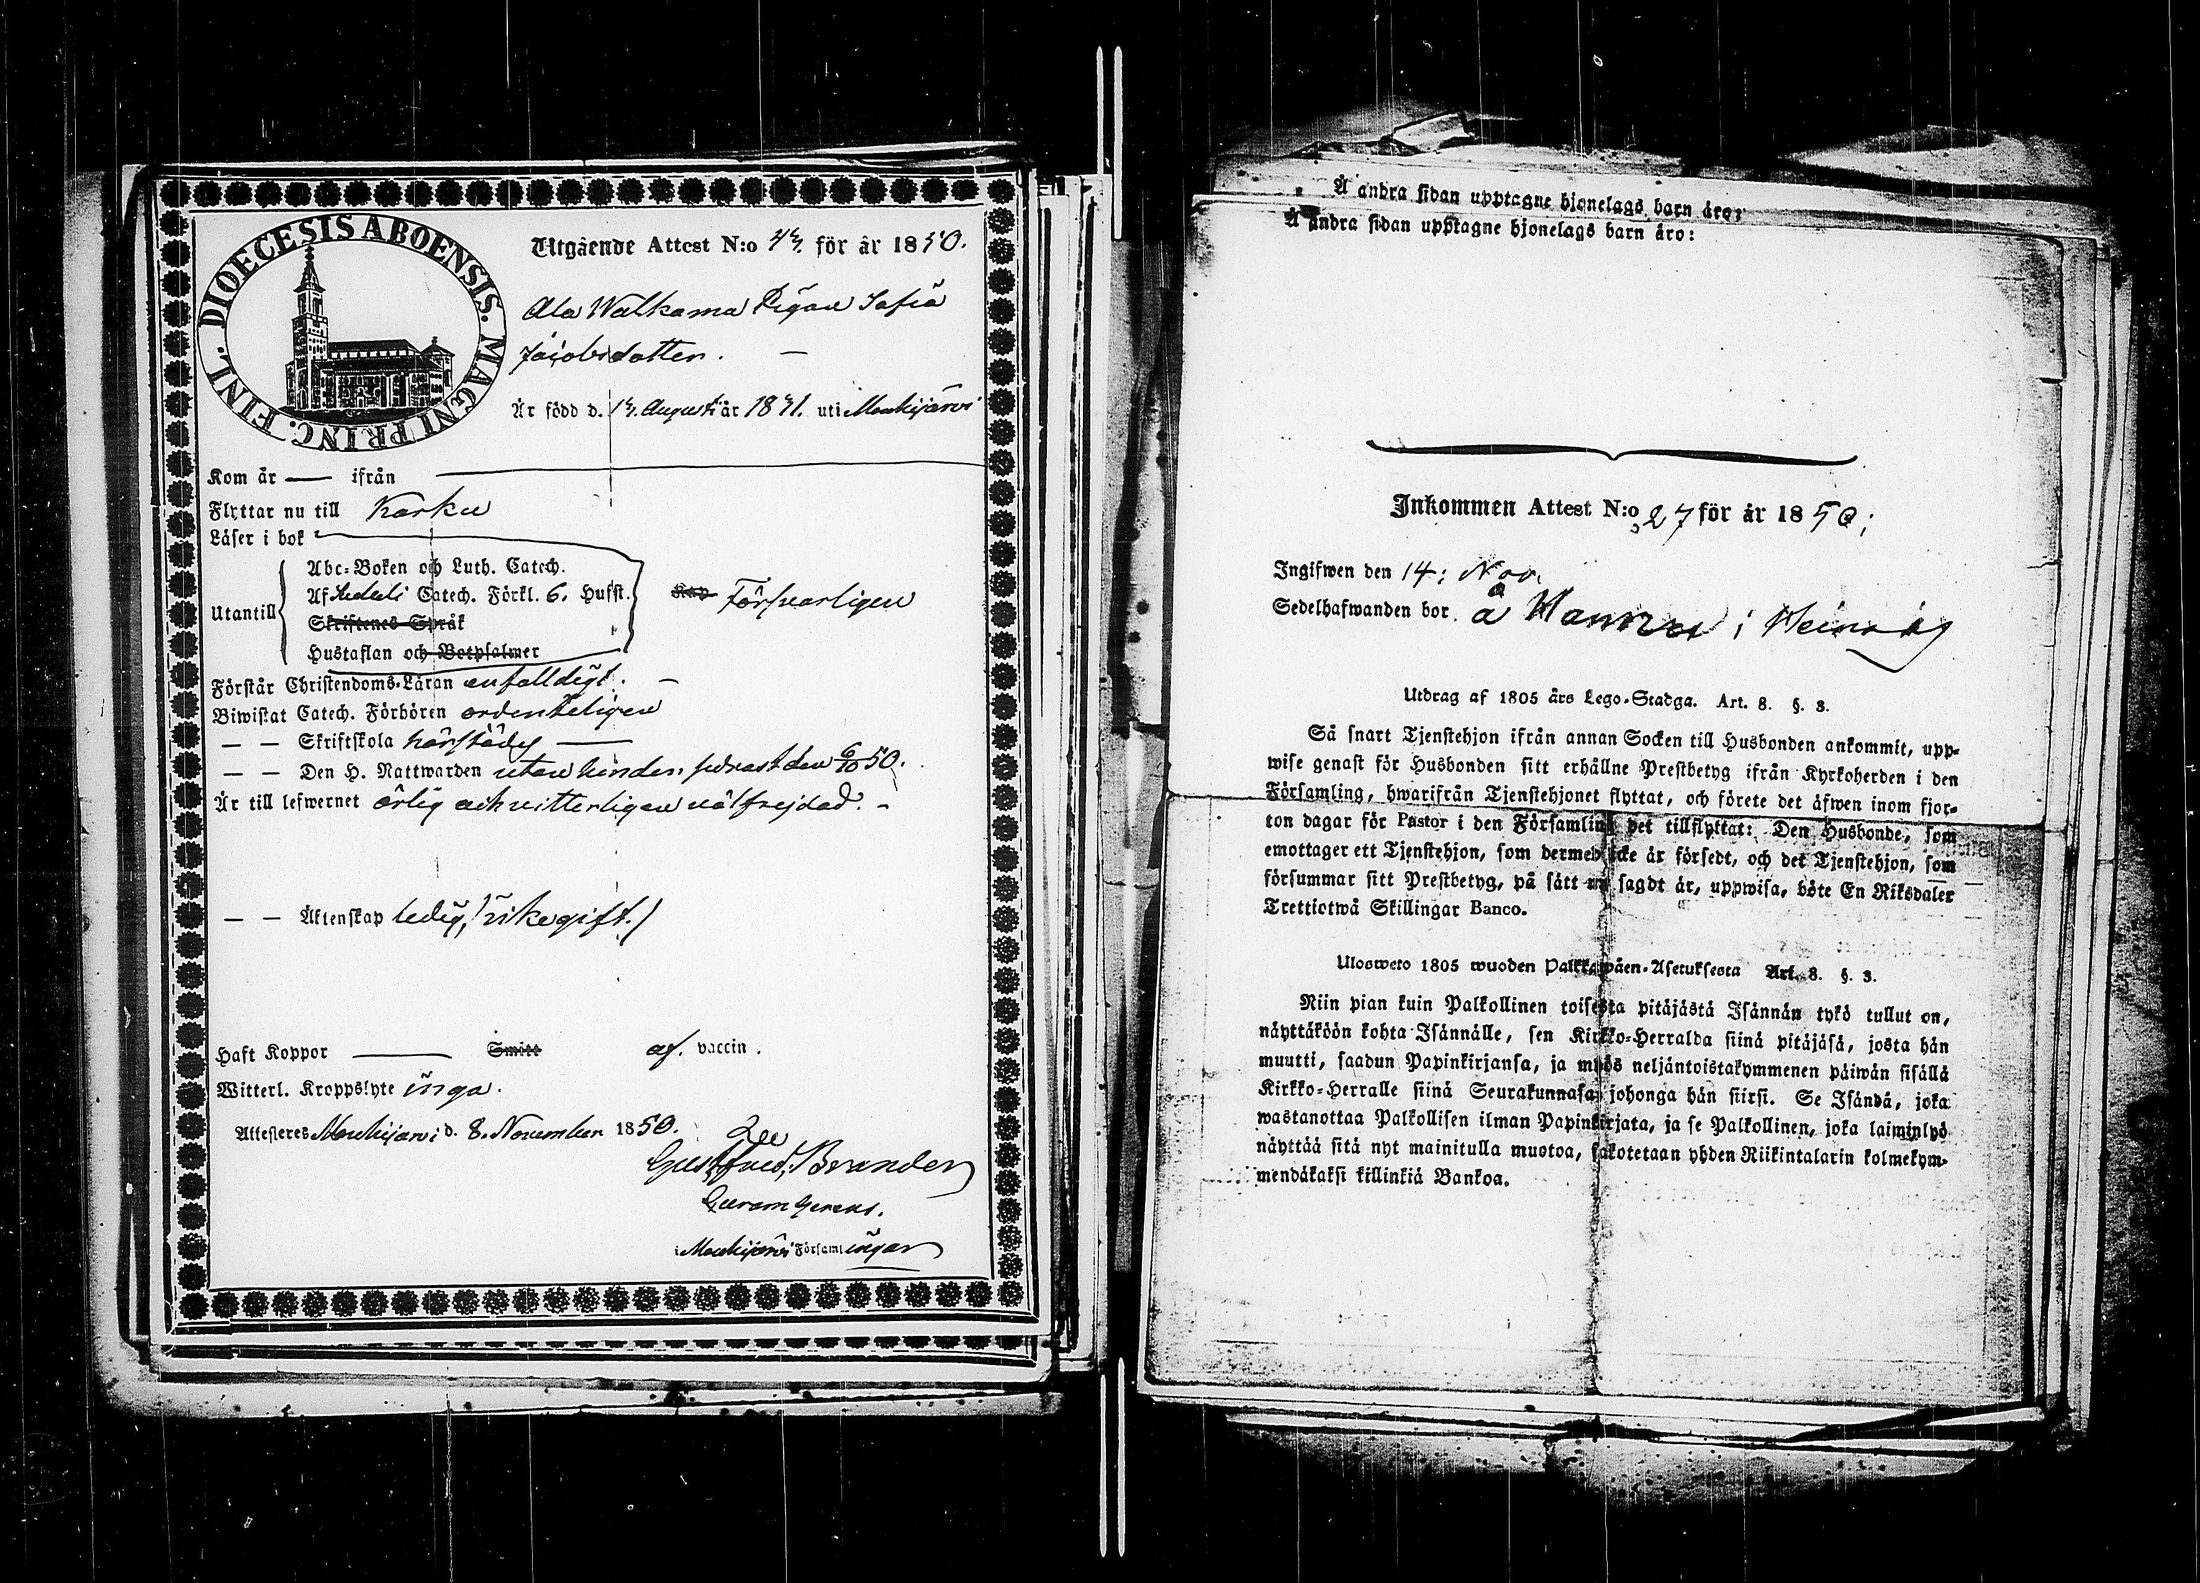 DIOECESIS ABOENSIS. MAGNI PRINC. FINL.
Utgående Attest N:o för år 1850.
Ala Walkama Pigan Sofia
Jacobsdotter. —
Är född d. Augusti år 1831. uti Mouhijärvi
Kom år — ifrån —
Flyttar nu till Karku
Läser i bok
Utantill
Abc-Boken och Luth. Catech.
Af Catech. Förkl. 6. Hufst.
Skriftenes Språk
Hustaflan och Botpsalmer
Försvarligen
Förstår Christendoms-Läran enfalldigt. —
Biwistat Catech. Förhören ordenteligen
— — Skriftskola härstädes —
— — Den H. Nattwarden utan hinder, sednast den 6/10 50.
Är till lefwernet ärlig och vitterligen välfrejdad. —
— — Äktenskap ledig, /: icke gift. /
Haft Koppor — Smitt af. vaccin.
Witterl. Kroppslyte inga.
Attesteres Mouhijärvi d. 8. November 1850.
Gust. Fred. Brander
i Mouhijärvi Församlingar
Å andra sidan upptagne hjonelags barn äro:
Å andra sidan upptagne hjonelags barn äro:
Inkommen Attest N:o 27 för år 1850;
Ingifwen den 14: Nov.
Sedelhafwanden bor å i
Utdrag af 1805 års Lego-Stadga. Art. 8. §. 3.
Så snart Tjenstehjon ifrån annan Socken till Husbonden ankommit, upp-
wise genast för Husbonden sitt erhållne Prestbetyg ifrån Kyrkoherden i den
Församling, hwarifrån Tjenstehjonet flyttat, och förete det äfwen inom fjor-
ton dagar för Pastor i den Församling det tillflyttat: Den Husbonde, som
emottager ett Tjenstehjon, som dermed icke är försedt, och det Tjenstehjon, som
försummar sitt Prestbetyg, på sätt nu sagdt är, uppwisa, böte En Riksdaler
Trettiotwå Skillingar Banco.
Ulosweto 1805 wuoden Palkkawäen-Asetuksesta Art. 8. §. 3.
Niin pian kuin Palkollinen toisesta pitäjästä Isännän tykö tullut on,
näyttäköön kohta Isännälle, sen Kirkko-Herralda siinä pitäjäsä, josta hän
muutti, saadun Papinkirjansa, ja myös neljäntoistakymmenen päiwän sisällä
Kirkko-Herralle siinä Seurakunnasa johonga hän siirsi. Se Isändä, joka
wastanottaa Palkollisen ilman Papinkirjata, ja se Palkollinen, joka laiminlyö
näyttää sitä nyt mainitulla muotoa, sakotetaan yhden Riikintalarin kolmekym-
mendäkaksi killinkiä Bankoa.